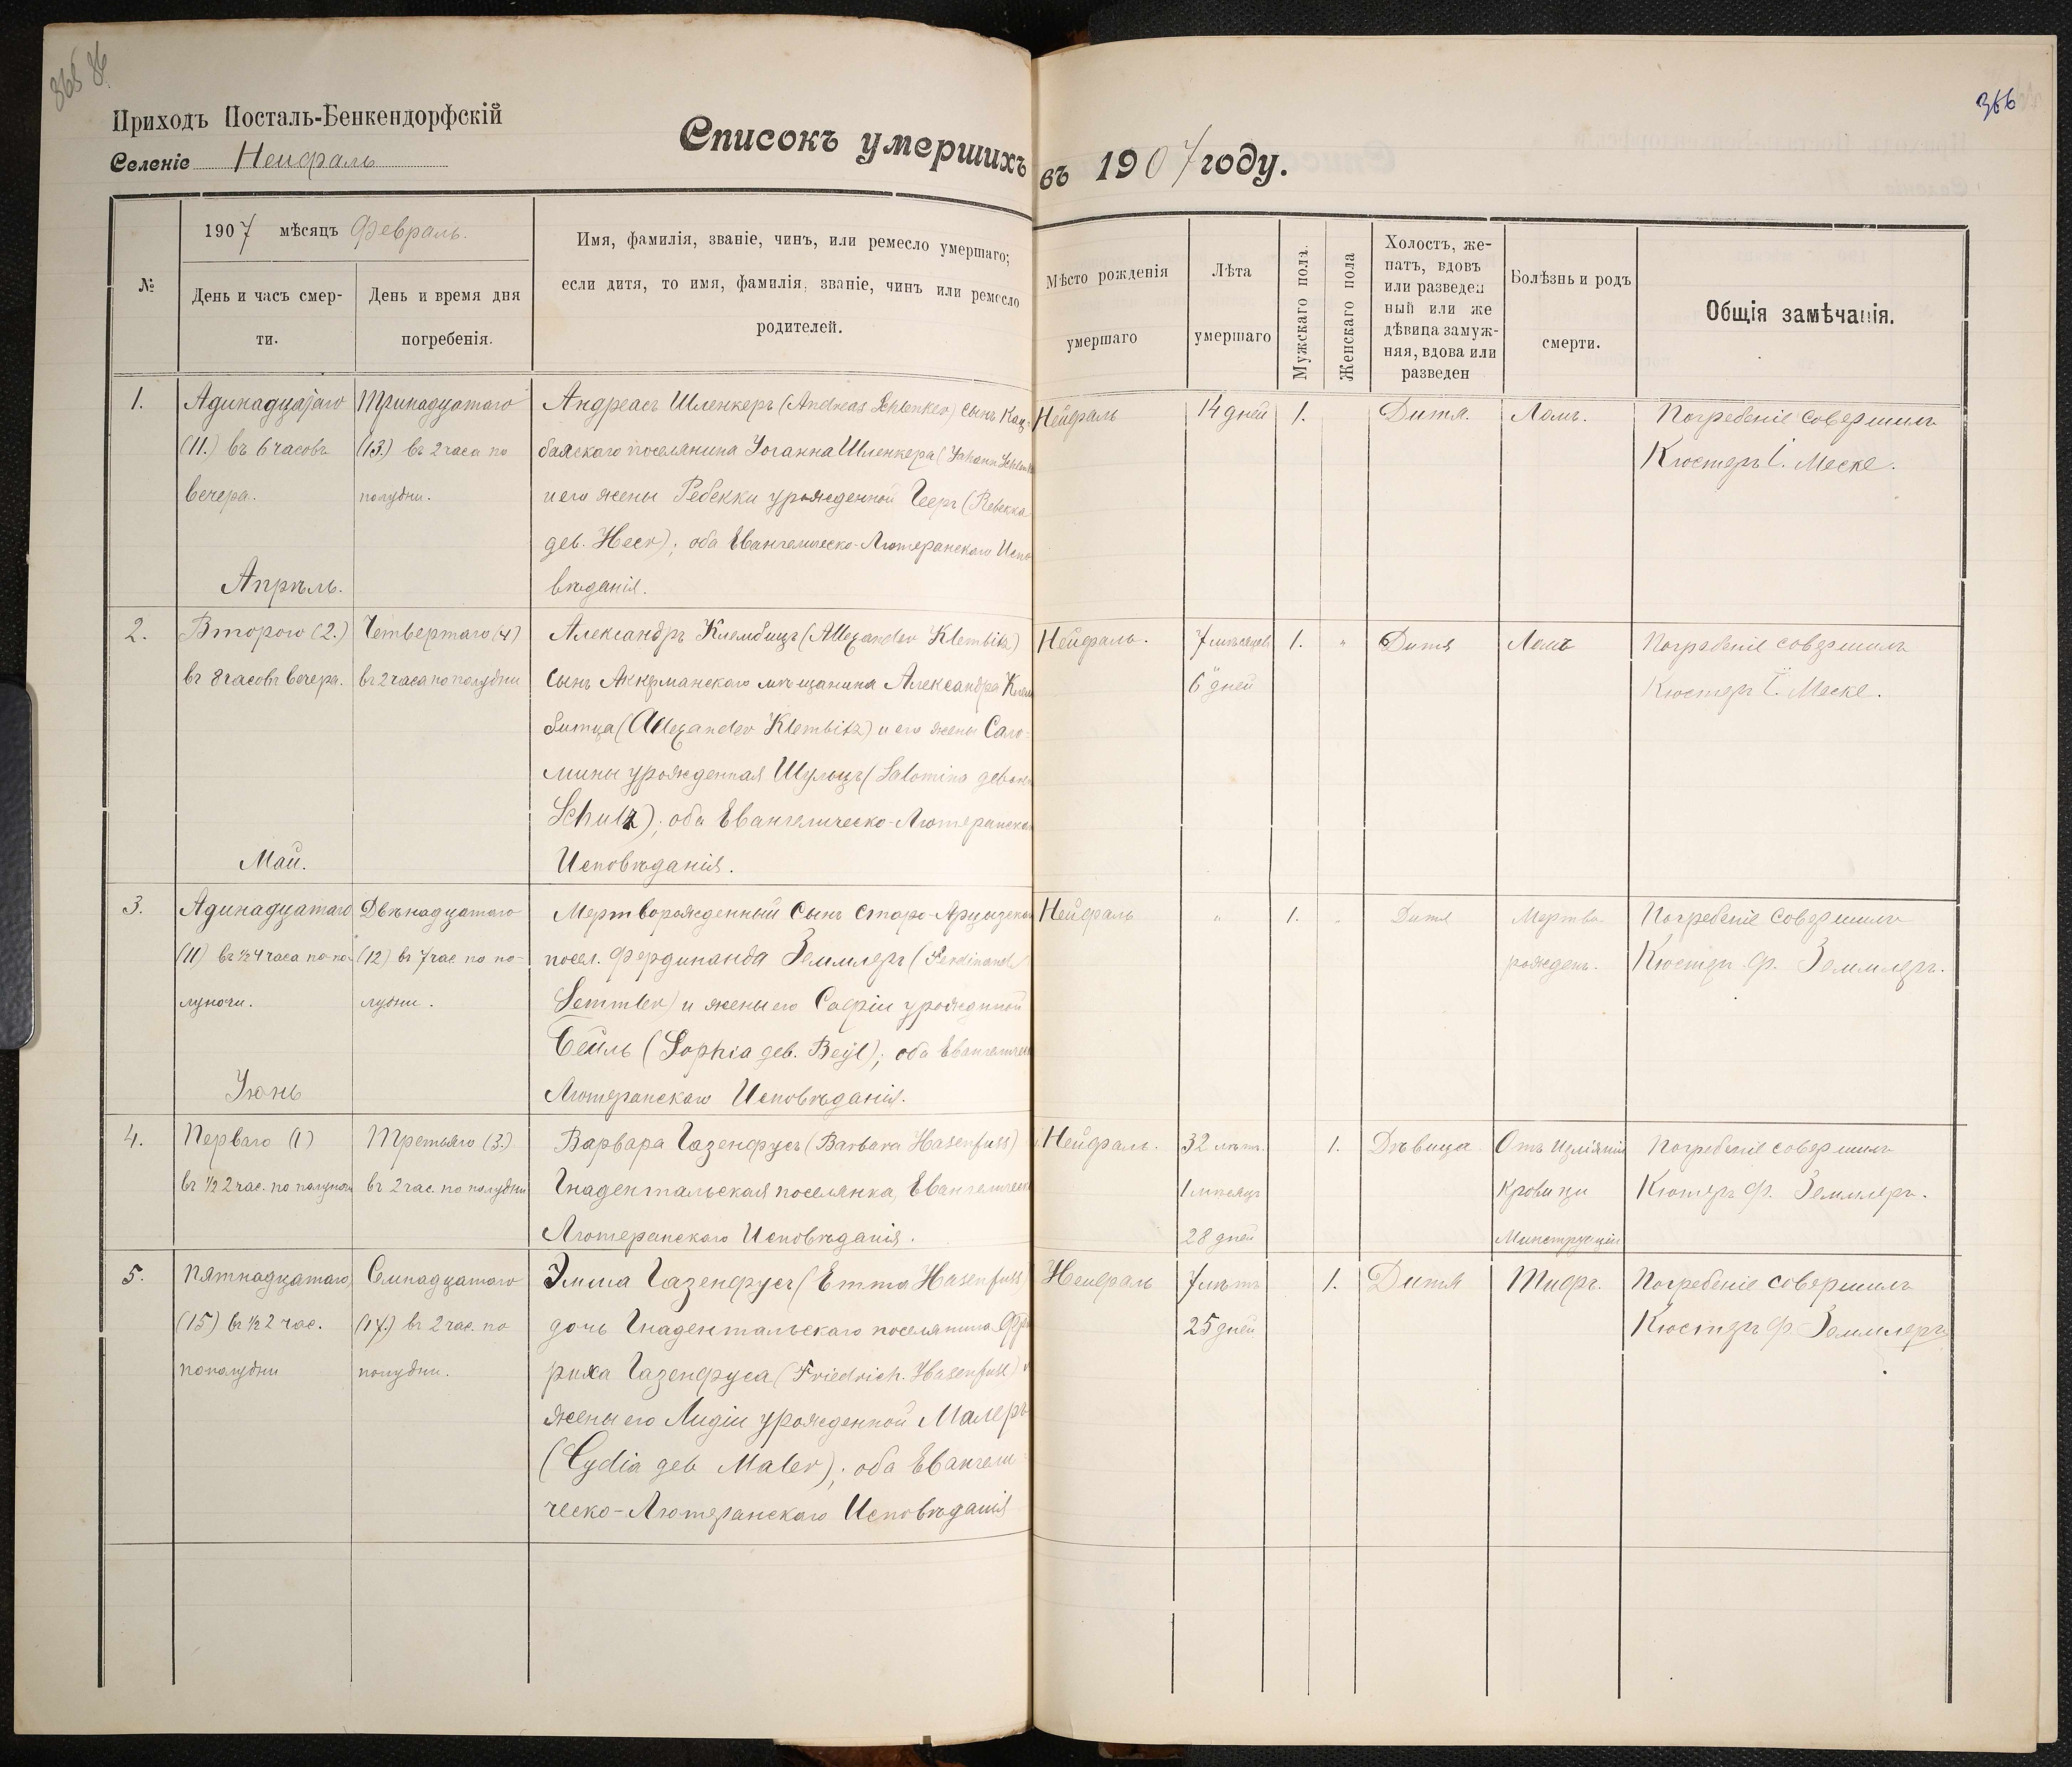 365 86
366
Приходъ Посталь-Бенкендорфскій
Селеніе Нейфраль
Списокъ умершихъ въ 1907 году.
№
1907 мѣсяцъ Февраль.
День и часъ смер-
ти.
День и время дня
погребенія.
Имя, фамилія, званіе, чинъ, или ремесло умершаго;
если дитя, то имя, фамилія, званіе, чинъ или ремесло
родителей.
Мѣсто рожденія
умершаго
Лѣта
умершаго
Мужскаго пола.
Женскаго пола
Холостъ, же-
натъ, вдовъ
или разведен
ный или же
дѣвица замуж-
няя, вдова или
разведен
Болѣзнь и родъ
смерти.
Общія замѣчанія.
1.
Адинадцатаго
(11.) въ 6 часовъ
вечера.
Тринадцатаго
(13.) въ 2 часа по
полудни.
Андреасъ Шленкеръ (Andreas Schlenker) сынъ Кац-
баяскаго поселянина Іоганна Шленкера (Johann
и его жены Ребекки урожденной Гееръ (Rebekka
дев. Heer); оба Евангелическо-Лютеранскаго Испо
вѣданія.
Нейфраль
14 дней
1.
Дитя.
Ломъ.
Погребеніе совершилъ
Кюстеръ І. Меске.
Апрѣль.
2.
Второго (2.)
въ 8 часовъ вечера.
Четвертаго (4)
въ 2 часа по полудни
Александръ Клембицъ (Allexander Klembitz)
сынъ Аккерманскаго мѣщанина Александра Клем
битца (Allexander Klembitz) и его жены Сало-
мины урожденная Шульцъ (Salomina
Schulz); оба Евангелическо-Лютеранска
Исповѣданія.
Нейфраль.
7 мѣсяцевъ
6 дней
1.
"
Дитя
Ломъ
Погребеніе совершилъ
Кюстеръ І. Меске.
Май.
3.
Адинадцатаго
(11) въ ½ 4 часа по по-
луночи.
Двѣнадцатаго
(12) въ 7 час. по по-
лудни.
Мертворожденный сынъ Старо-Арцизска
посел. Фердинанда Земмлеръ (Ferdinand
Semmler) и жены его Софіи урождиной
Бейль (Sophia дев. Beyl); оба Евангеличес
Лютеранскаго Исповѣданія.
Нейфраль
"
1.
"
Дитя
Мертво-
рожденъ.
Погребеніе совершилъ
Кюстеръ Ф. Земмлеръ.
Іюнь
4.
Перваго (1)
въ ½ 2 час. по полуночи
Третьяго (3.)
въ 2 час. по полудни
Варвара Газенфусъ (Barbara Hasenfuss)
Гнадентальская поселянка, Евангелическ
Лютеранскаго Исповѣданія.
Нейфраль.
32 лѣтъ.
1 мѣсяцъ
28 дней
1.
Дѣвица
Отъ Изліянія
Крови
Погребеніе совершилъ
Кюстеръ Ф. Земмлеръ.
5.
Пятнадцатаго
(15) въ ½ 2 час.
пополудни
Семнадцатаго
(17.) въ 2 час. по
полудни.
Эмма Газенфусъ (Emma Hasenfuss)
дочь Гнадентальскаго поселянина Фри
риха Газенфуса (Friedrich. Hasenfuss) и
жены его Лидіи урожденной Малеръ
(Lydia дев Maler); оба Евангели-
ческо-Лютеранскаго Исповѣданія
Нейфраль
7 лѣтъ
25 дней
1.
Дитя
Тифъ.
Погребеніе совершилъ
Кюстеръ Ф Земмлеръ